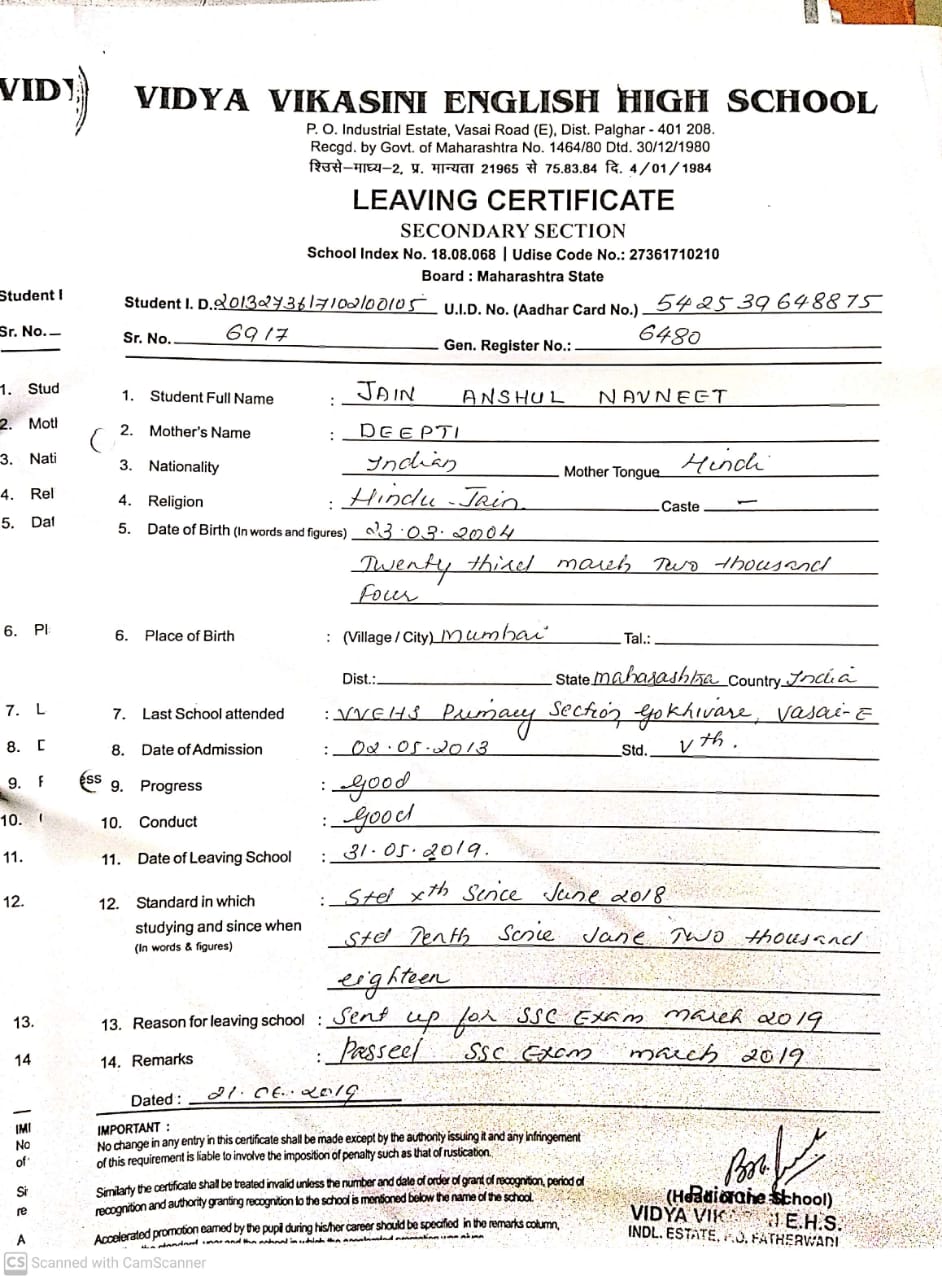 VIDY
VIDYA VIKASINI ENGLISH HIGH SCHOOL
P. O. Industrial Estate, Vasai Road (E), Dist. Palghar - 401 208.
Recgd. by Govt. of Maharashtra No. 1464/80 Dtd. 30/12/1980
श्विउसे-माघ्य-2, प्र. मान्यता 21965 से 75.83.84 दि. 4/01/1984
LEAVING CERTIFICATE
SECONDARY SECTION
School Index No. 18.08.068 | Udise Code No.: 27361710210
Board : Maharashtra State
Student I
Student I. D. 2013273617102100105 U.I.D. No. (Aadhar Card No.) 542539648875
Sr. No.
Sr. No. 6917 Gen. Register No.: 6480
1. Stud
1. Student Full Name : JAIN ANSHUL NAVNEET
2. Motl
2. Mother's Name : DEEPTI
3. Nati
3. Nationality Indian Mother Tongue Hindi
4. Rel
4. Religion : Hindu - Jain Caste —
5. Dat
5. Date of Birth (In words and figures) 23.03.2004
Twenty third march Two thousand
Four
6. Pl
6. Place of Birth : (Village / City) Mumbai Tal.:
Dist.: State maharashtra Country India
7. L
7. Last School attended : VVEHS Primary Section, Gokhivare, Vasai-E
8. D
8. Date of Admission : 02.05.2013 Std. Vth.
9. F
ess 9. Progress : Good
10.
10. Conduct : Good
11.
11. Date of Leaving School : 31.05.2019.
12.
12. Standard in which : Std Xth Since June 2018
studying and since when
(In words & figures)
Std Tenth Scnie June Two thousand
eighteen
13.
13. Reason for leaving school : Sent up for SSC Exam march 2019
14
14. Remarks : Passed SSC Exam march 2019
Dated : 21.06.2019
IMI
No
of
Si
re
A
IMPORTANT :
No change in any entry in this certificate shall be made except by the authority issuing it and any infringement
of this requirement is liable to involve the imposition of penalty such as that of rustication.
Similarly the certificate shall be treated invalid unless the number and date of order of grant of recognition, period of
recognition and authority granting recognition to the school is mentioned below the name of the school.
Accelerated promotion earned by the pupil during his/her career should be specified in the remarks column,
(Head of the School)
VIDYA VIK E.H.S.
INDL. ESTATE, P.O. FATHERWADI
CS Scanned with CamScanner